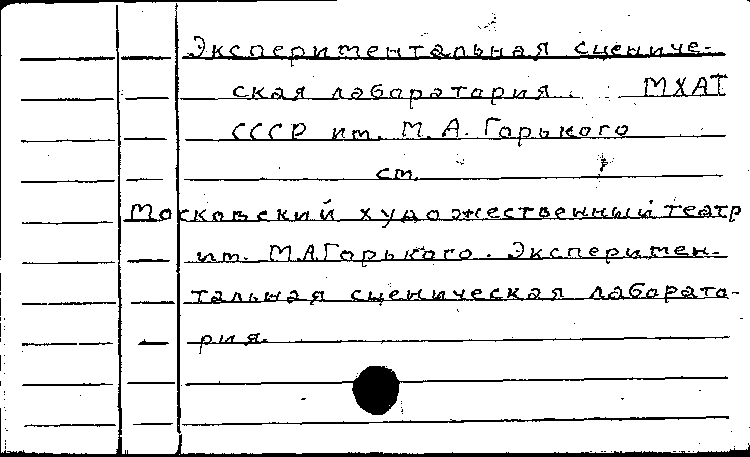 Экспериментальная сцениче-
ская лаборатория МХАТ
СССР им. М. А. Горького
см.
Московский художественный театр
им. М.А.Горького. Эксперимен-
тальная сценическая лаборато-
рия.